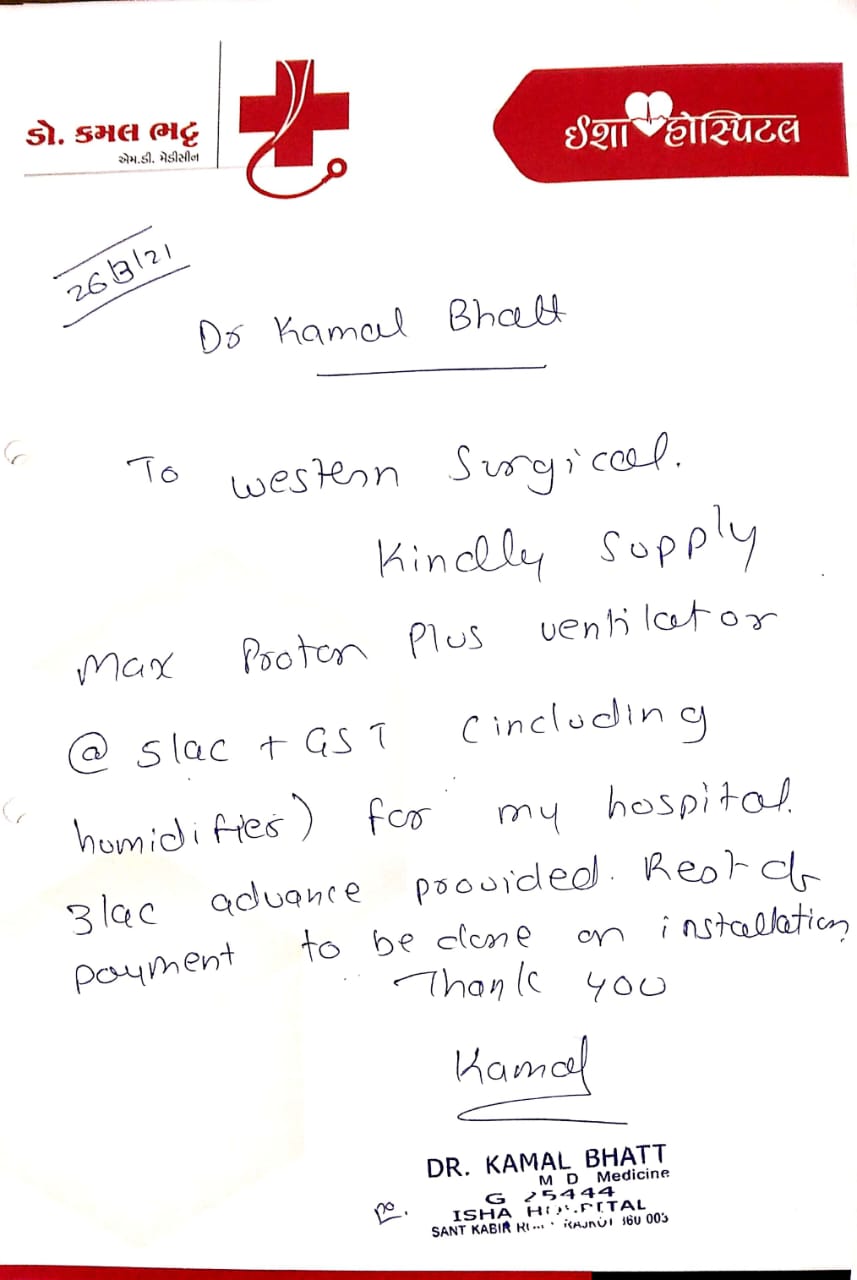 ડો. કમલ ભટ્ટ
એમ.ડી. મેડીસીન
ઈશા હોસ્પિટલ
26/3/21
Dr Kamal Bhatt
To Western Surgical.
Kindly supply
Max Proton Plus ventilator
@ 5lac + GST (including
humidifier) for my hospital.
3lac advance provided. Rest of
payment to be done on installation
Thank you
Kamal
DR. KAMAL BHATT
M D Medicine
G 25444
ISHA HOSPITAL
SANT KABIR 360 003